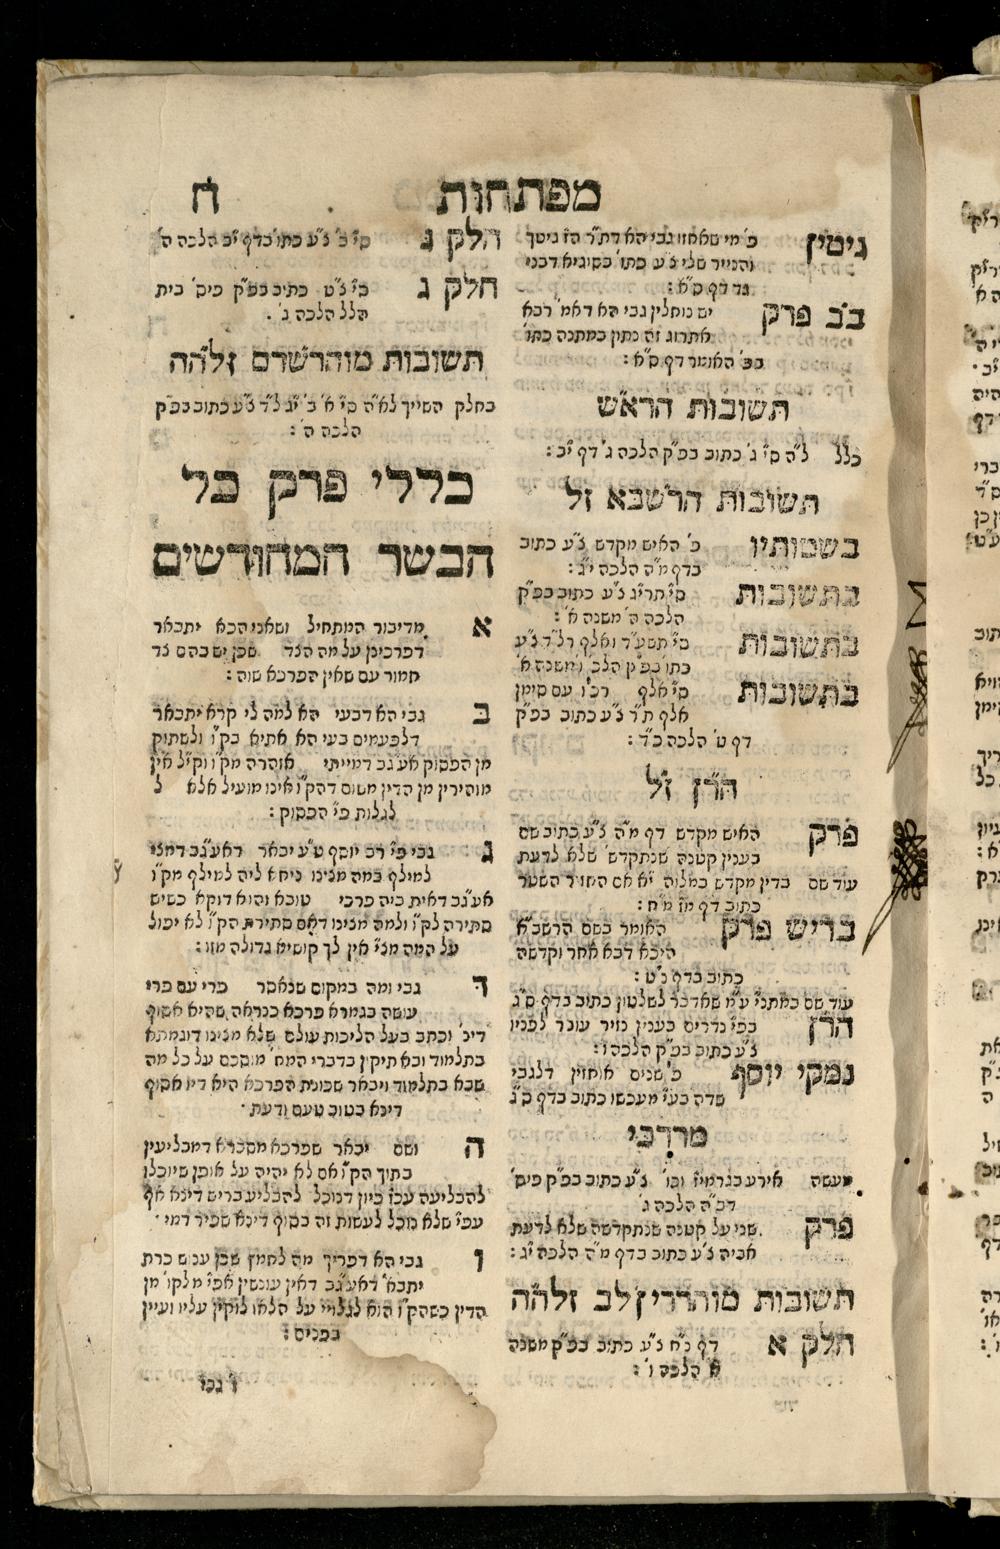 מפתחות ח
גיטין פ' מי שאחזו גבי הא דת"ר הז גיטך
והנייר שלי נ"ע כתו' בסוגיא דבני
גד דף ס"א :
ב"ב פרק יש נוחלין גבי הא דאמ' רבא
אתרוג זה נתון במתנה כתו'
בפ' האומר דף ס"א :
תשובות הרא"ש
כלל ל"ה סי' ג' כתוב בפ"ק הלכה ג' דף י"ב :
תשובות הרשב"א ז"ל
בשמותיו פ' האיש מקדש נ"ע כתוב
בדף מ"ה הלכה י"ג :
בתשובות סי' תרי"ג נ"ע כתוב בפ"ק
הלכה ה' משנה א' :
בתשובות סי' תשע"ד ואלף רל"ד נ"ע
כתו' בפ"ק הלכ' ומשנה א'
בתשובות סי' אלף רכ"ו עם סימן
אלף ת"ר נ"ע כתוב בפ"ק
דף ט' הלכה כ"ד :
הר"ן ז"ל
פרק האיש מקדש דף מ"ה נ"ע כתיב שם
בענין קטנה שנתקדש' שלא לדעת
עוד שם בדין מקדש במלוה י"א אם החזיר השטר
כתוב דף מ"ז מ"ח :
בריש פרק האומר בשם הרשב"א
היכא דבא אחר וקדשה
כתוב בדף נ"ט :
עוד שם במתני' ע"מ שאדבר לשלטון כתוב בדף ס"ג
הר"ן בפ' נדרים בענין נזיר עובר לפניו
נ"ע כתוב בפ"ק הלכה ו :
נמקי יוסף פ' שנים אוחזין דלגבי
שדה בע"י מעכשו כתוב בדף ס"ג
מרדכי
מעשה אירע בגרמיז' וכו' נ"ע כתוב בפ"ק פיס'
דכ"ה הלכה ג'
פרק שני על קטנה שנתקדשה שלא לדעת
אביה נ"ע כתוב בדף מ"ה הלכה י"ג :
תשובות מוהרריזלב זלהה
חלק א דף נ"ח נ"ע כתיב בפ"ק משנה
א' הלכה ו' :
חלק ג סי' כ' נ"ע כתו' בדף י"ב הלכה ה'
חלק ג סי' נ"ט כתיב בפ"ק פיס' בית
הלל הלכה ג' .
תשובות מוהרשדם זלהה
בחלק השייך לא"ה סי' א' ב' י"ג ל"ד נ"ע כתוב בפ"ק
הלכה ה' :
כללי פרק כל
הבשר המחודשים
א מדיבור המתחיל ושאני הכא יתבאר
דפרכינן על מה הצד שכן יש בהם צד
חמור עם שאין הפרכא שוה :
ב גבי הא דבעי הא למה לי קרא יתבאר
דלפעמים בעי הא אתיא בק"ו ולשתוק
מן הפסוק אע"גב דמייתי אזהרה מק"ו וק"ל אין
מזהירין מן הדין משום דהק"ו אינו מועיל אלא ל
לגלות פי' הפסוק :
ג גבי פי' רב יוסף ט"ע יבאר דאע"גב דמצי
למילף במה מצינו ניחא ליה למילף מק"ו
אע"גב דאית ביה פרכי טובא והוא דוקא כשיש
סתירה לק"ו ולמה מצינו דאם סתירת הק"ו לא יכול
על המה מצי' אין לך קושיא גדולה מזו :
ד גבי ומה במקום שנאסר פרי עם פרי
עושה בגמרא פרכא כנראה שהיא אסוף
דינ' וכתב בעל הליכות עולם שלא מצינו דוגמתא
בתלמוד ובא תיקין בדברי המח' מוסכם על כל מה
שבא בתלמוד ויבאר שכונת הפרכא היא דיו אסוף
דינא בטוב טעם ודעת .
ה ושם יבאר שפרכא מסברא דמבליעין
בתוך הק"ו אם לא יהיה על אופן שיוכלו
להבליעה עכ"ז כיון דנוכל להבליע בריש דינא אף
עפ"י שלא נוכל לעשות זה בסוף דינא שפיר דמי .
ו גבי הא דפריך מה לחמץ שכן ענוש כרת
יתבא' דאע"גב דאין עונשין אפי' מלקו' מן
הדין כשהק"ו הוא לגלויי על הלאו לוקין עליו ועיין
בפנים :
ז גבי